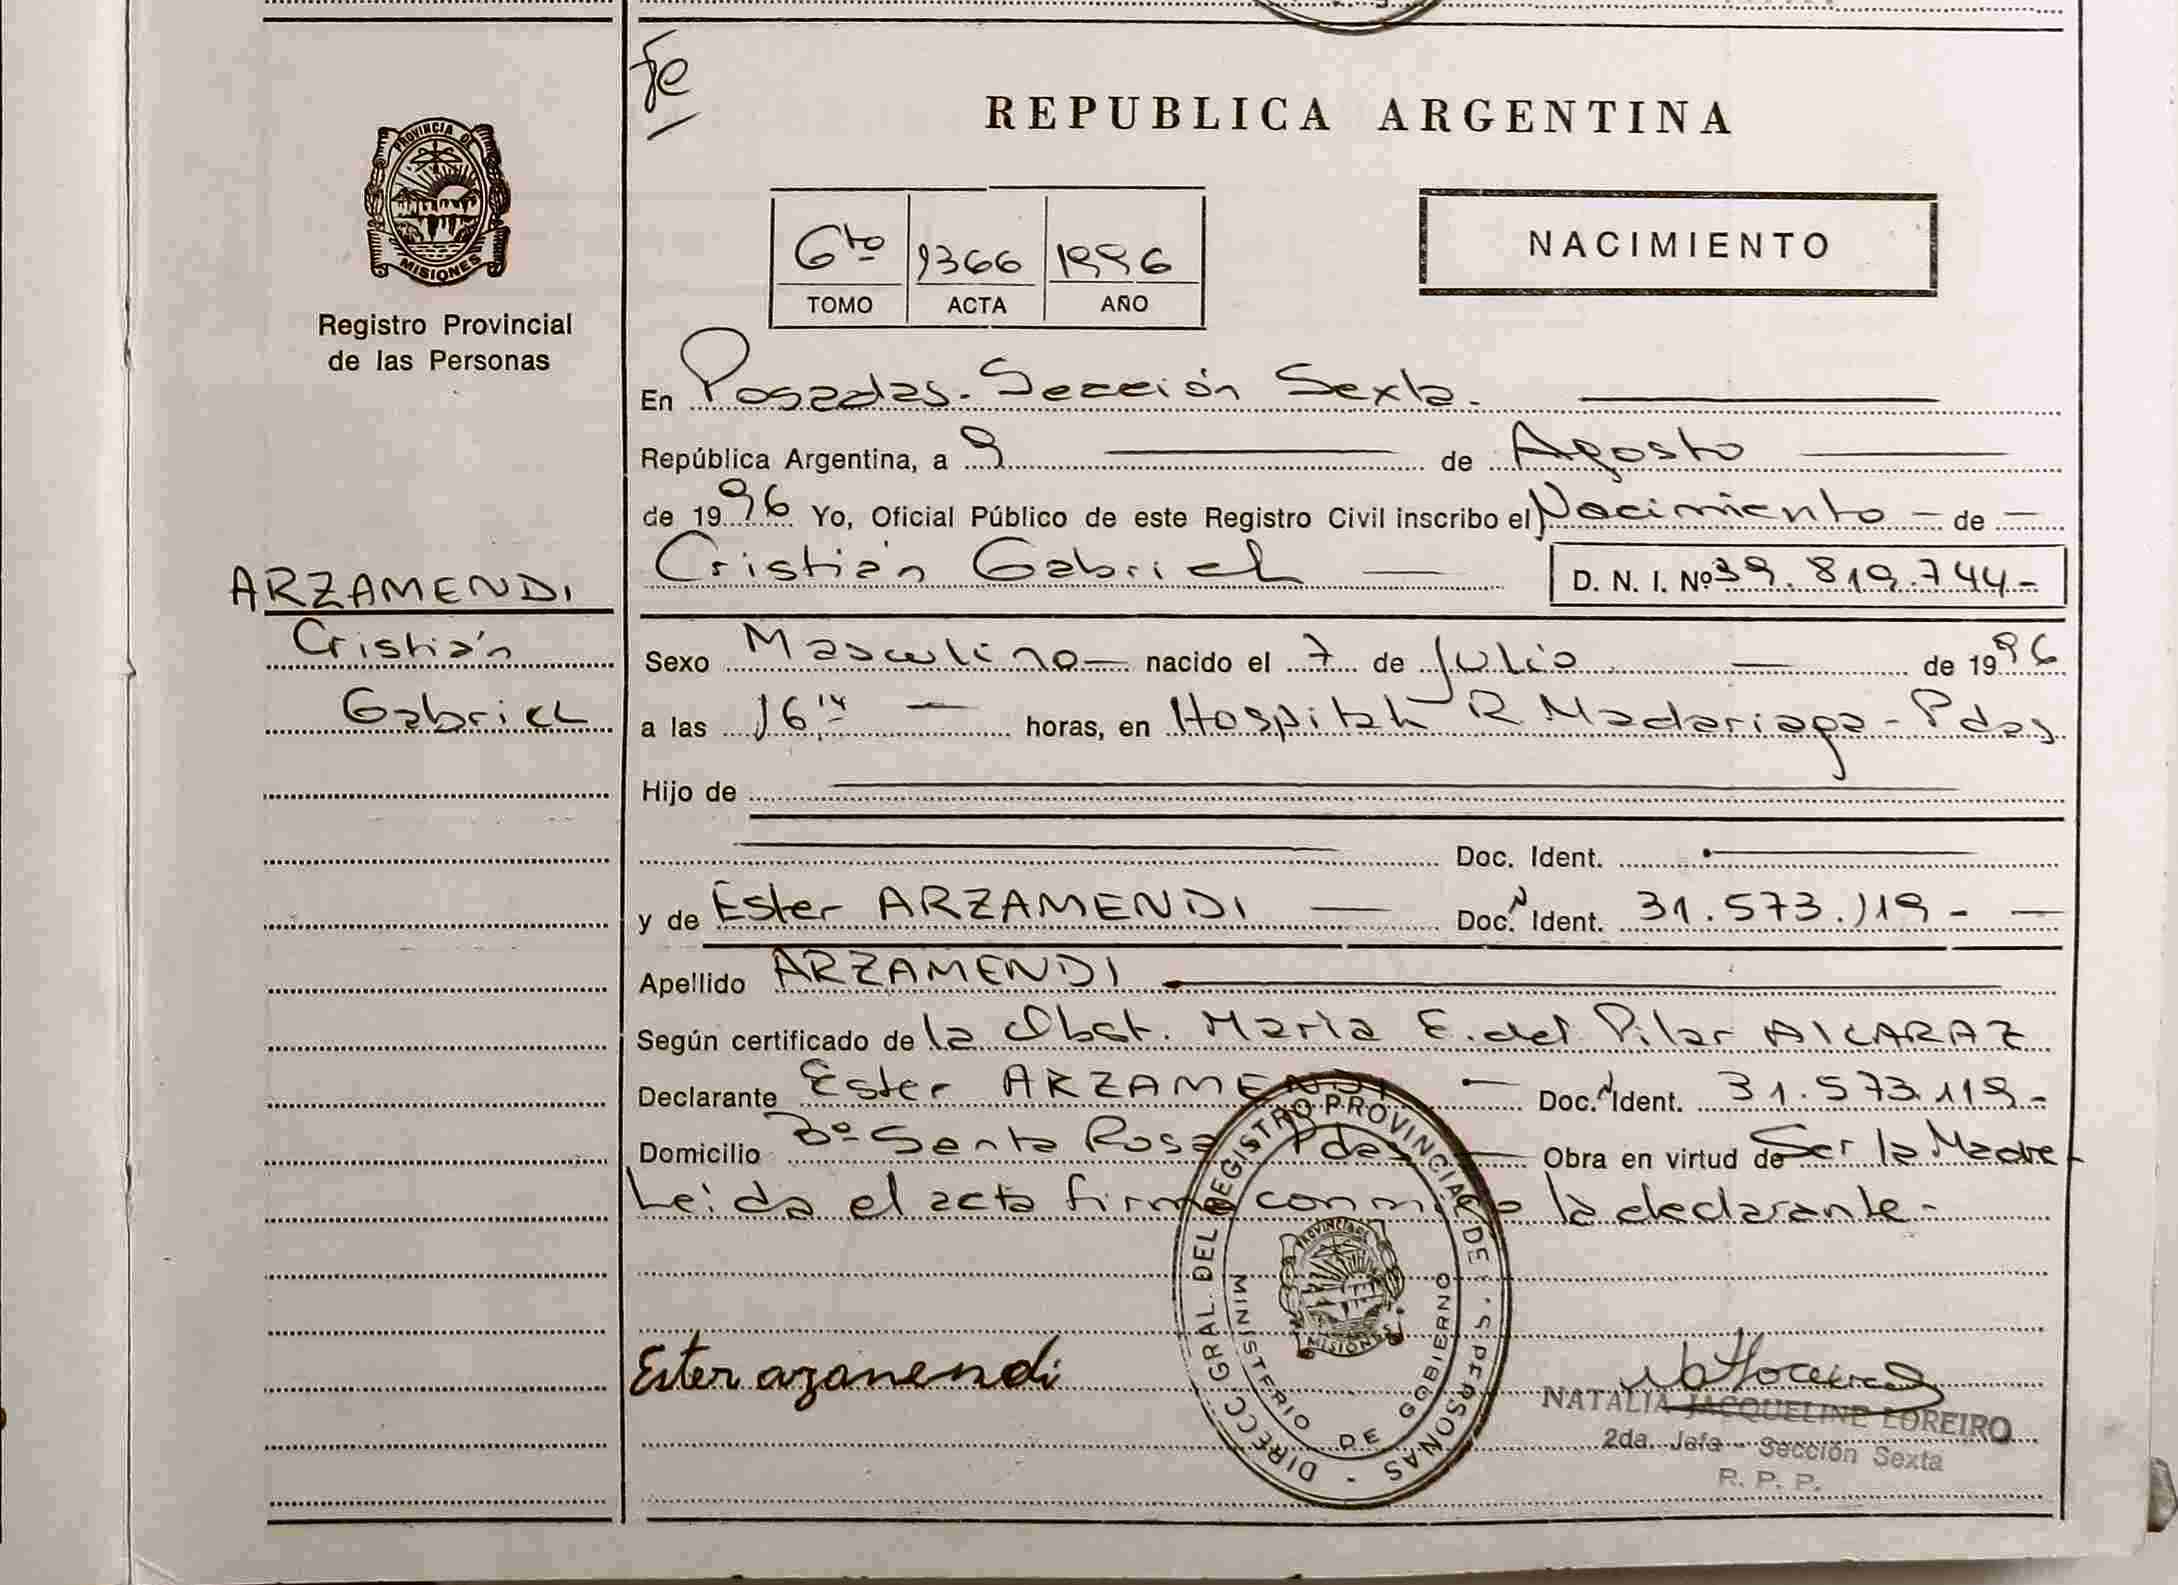 fe
PROVINCIA DE
MISIONES
Registro Provincial
de las Personas
REPUBLICA ARGENTINA
6to 1366 1996
TOMO ACTA AÑO
NACIMIENTO
En Posadas. Sección Sexta.
República Argentina, a 9 de Agosto
de 1996 Yo, Oficial Público de este Registro Civil inscribo el Nacimiento - de -
Cristián Gabriel D. N. I. Nº 39.819.744-
ARZAMENDI
Cristián
Gabriel
Sexo Masculino nacido el 7 de Julio de 1996
a las 16 horas, en Hospital R. Madariaga - Pdas
Hijo de
Doc. Ident.
y de Ester ARZAMENDI Doc. Ident. 31.573.119-
Apellido ARZAMENDI
Según certificado de la Obst. María E. del Pilar ALCARAZ
Declarante Ester ARZAMENDI Doc. Ident. 31.573.119-
Domicilio Bº Santa Rosa Pdas Obra en virtud de Ser la Madre
Leída el acta firma conmigo la declarante-
DIRECC GRAL. DEL REGISTRO PROVINCIAL DE S PERSONAS
MINISTERIO DE GOBIERNO
PROVINCIA DE
MISIONES
Ester azamendi
NATALIA JACQUELINE LOREIRO
2da. Jefa - Sección Sexta
R. P. P.